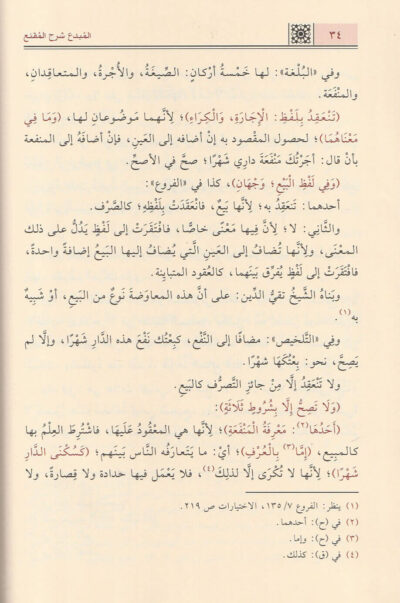 ٣٤
المُبدع شرح المُقنع
وفي «البُلْغة»: لها خَمْسةُ أرْكانٍ: الصِّيغَةُ، والأُجْرةُ، والمتعاقِدانِ،
والمنْفَعَة.
(تَنْعَقِدُ بِلَفْظِ: الْإِجَارَةِ، وَالْكِرَاءِ)؛ لأِنَّهما مَوضُوعانِ لها، (وَمَا فِي
مَعْنَاهُمَا)؛ لحصول المقْصود به إنْ أضافه إلى العَينِ، فإنْ أضافَهُ إلى المنفعة
بأنْ قال: أجَرْتُكَ مَنْفَعَةَ دارِي شَهْرًا؛ صحَّ في الأصحِّ.
(وَفِي لَفْظِ الْبَيْعِ؛ وَجْهَانِ)، كذا في «الفروع»:
أحدهما: تَنعَقِدُ به؛ لأِنَّها بَيعٌ، فانْعَقَدَتْ بِلَفْظِه؛ كالصَّرْف.
والثَّانِي: لا؛ لِأنَّ فيها مَعْنًى خاصًّا، فافْتَقَرَتْ إلى لَفْظٍ يَدُلُّ على ذلك
المعْنَى، ولأِنَّها تُضافُ إلى العَينِ الَّتي يُضافُ إليها البَيعُ إضافةً واحدةً،
فافْتَقَرَتْ إلى لَفْظٍ يُفرِّق بَينَهما، كالعُقود المتبايِنة.
وبَناهُ الشَّيخُ تقيُّ الدِّين: على أنَّ هذه المعاوَضةَ نَوعٌ من البَيع، أو شَبِيهٌ
به(١).
وفِي «التَّلخيص»: مضافًا إلى النَّفْع، كبِعْتُك نَفْعَ هذه الدَّارِ شَهْرًا، وإلَّا لم
يَصِحَّ، نحو: بِعْتُكَها شهرًا.
ولا تَنْعَقِدُ إلَّا مِنْ جائزِ التَّصرُّف كالبَيع.
(وَلَا تَصِحُّ إِلَّا بِشُرُوطٍ ثَلَاثَةٍ):
(أَحَدُهَا(٢): مَعْرِفَةُ الْمَنْفَعَةِ)؛ لأِنَّها هي المعْقُودُ عَلَيهَا، فاشْتُرِطَ العِلْمُ بها
كالمبيع، (إِمَّا(٣) بِالْعُرْفِ)؛ أيْ: ما يَتَعارَفُه النَّاس بَينَهم؛ (كَسُكْنَى الدَّارِ
شَهْرًا)؛ لأِنَّها لا تُكْرَى إلَّا لذلِكَ(٤)، فلا يَعْمَل فيها حدادة ولا قِصارةً، ولا
(١) ينظر: الفروع ٧/ ١٣٥، الاختيارات ص ٢١٩.
(٢) في (ح): أحدهما.
(٣) في (ح): وإما.
(٤) في (ق): كذلك.